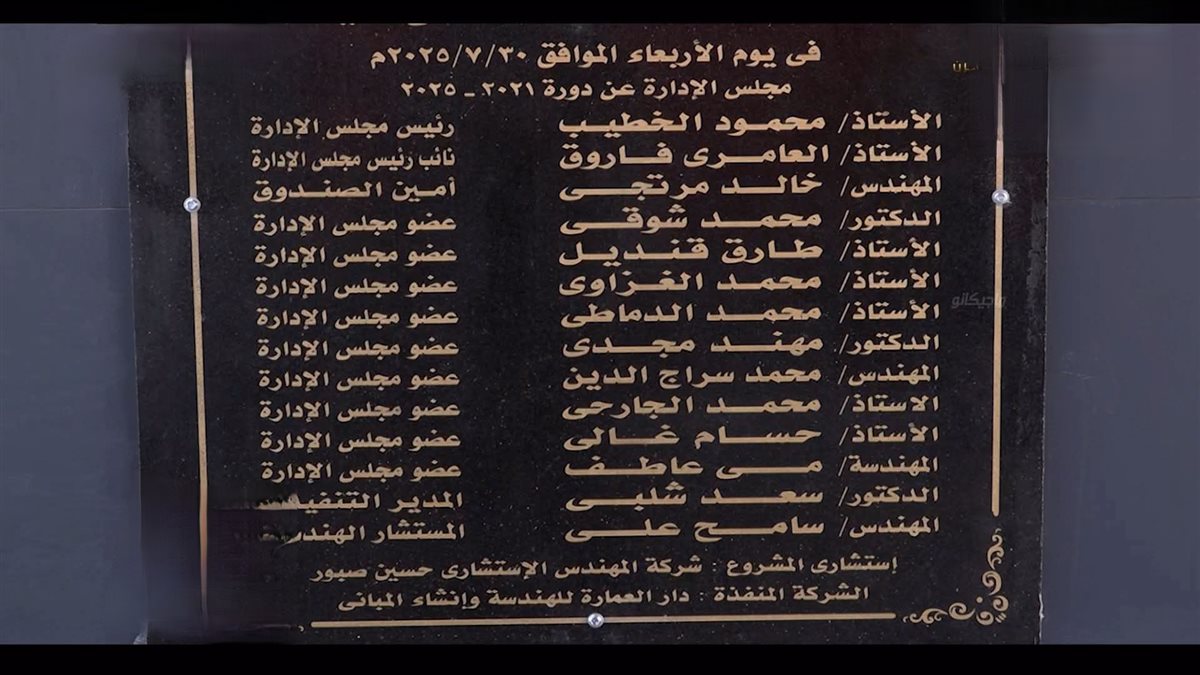 فى يوم الأربعاء الموافق ٢٠٢٥/٧/٣٠م
مجلس الإدارة عن دورة ٢٠٢١ - ٢٠٢٥
الأستاذ/ محمود الخطيب رئيس مجلس الإدارة
الأستاذ/ العامرى فاروق نائب رئيس مجلس الإدارة
المهندس/ خالد مرتجى أمين الصندوق
الدكتور/ محمد شوقى عضو مجلس الإدارة
الأستاذ/ طارق قنديل عضو مجلس الإدارة
الأستاذ/ محمد الغزاوى عضو مجلس الإدارة
الأستاذ/ محمد الدماطى عضو مجلس الإدارة
الدكتور/ مهند مجدى عضو مجلس الإدارة
المهندس/ محمد سراج الدين عضو مجلس الإدارة
الأستاذ/ محمد الجارحى عضو مجلس الإدارة
الأستاذ/ حسام غالى عضو مجلس الإدارة
المهندسة/ مى عاطف عضو مجلس الإدارة
الدكتور/ سعد شلبى المدير
المهندس/ سامح على المستشار
إستشارى المشروع : شركة المهندس الإستشارى حسين صبور
الشركة المنفذة : دار العمارة للهندسة وإنشاء المبانى
ماجيكانو